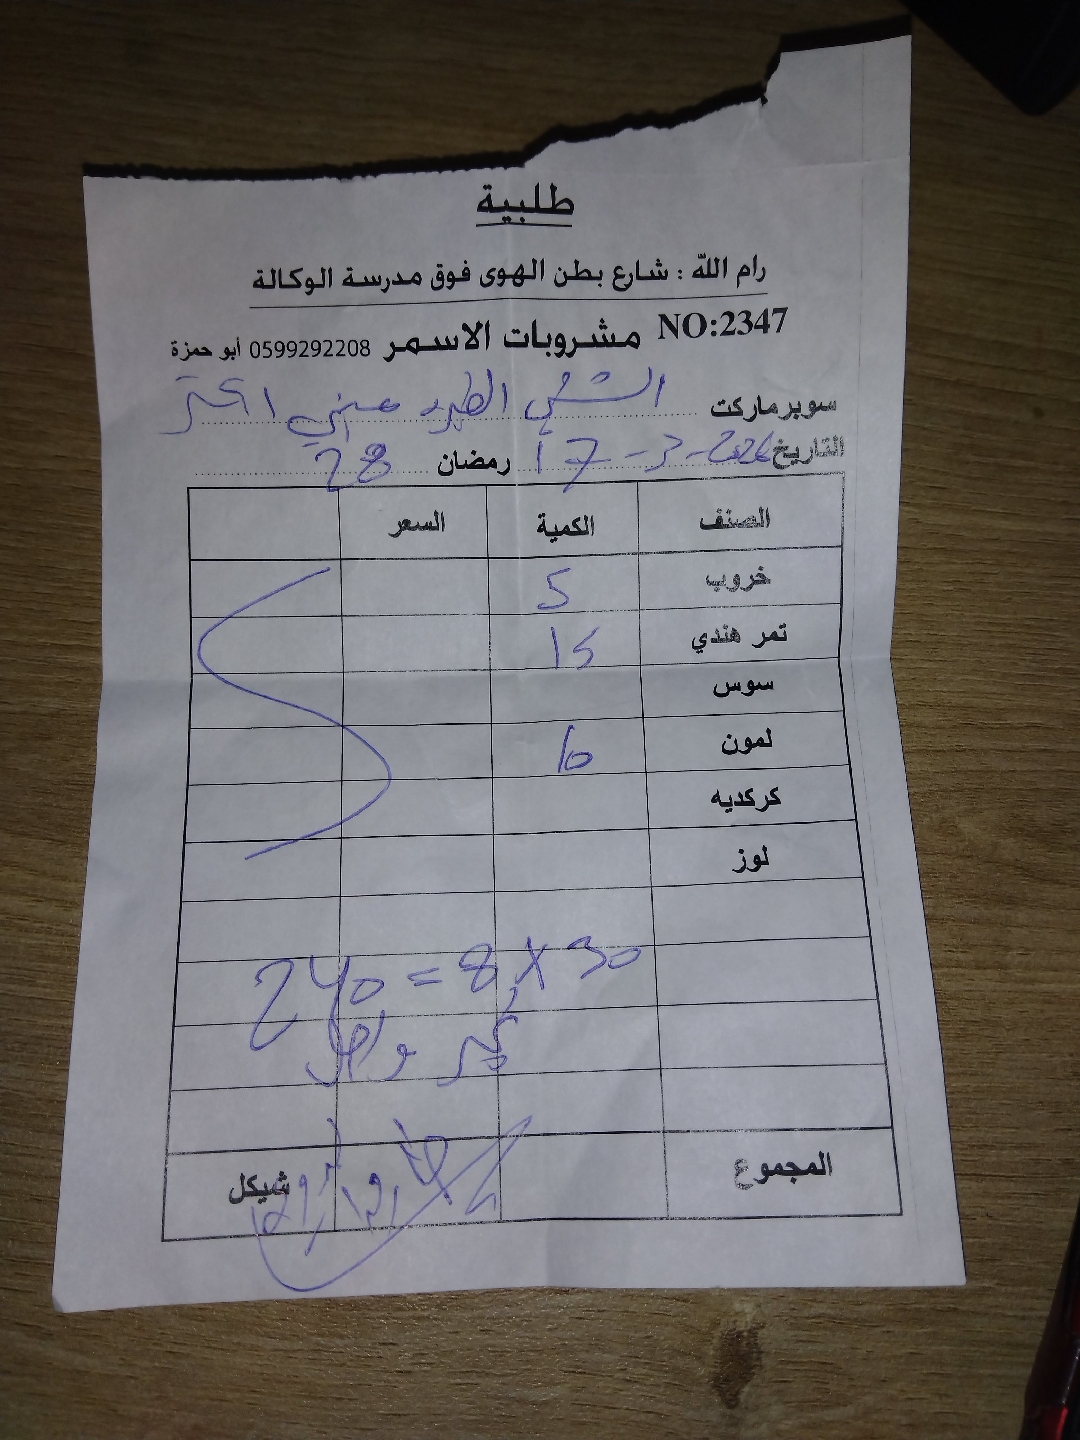 طلبية
رام الله : شارع بطن الهوى فوق مدرسة الوكالة
NO:2347 مشروبات الاسمر 0599292208 أبو حمزة
سوبرماركت
التاريخ 17-3-2026 رمضان 28
الصنف الكمية السعر
خروب 5
تمر هندي 15
سوس
لمون 10
كركديه
لوز
240 = 8 X 30
واصل
المجموع شيكل